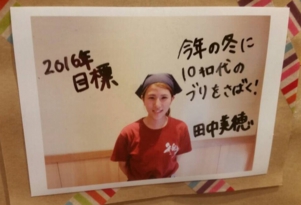 2016年
目標
今年の冬に
10kg代の
ブリをさばく!
田中美穂